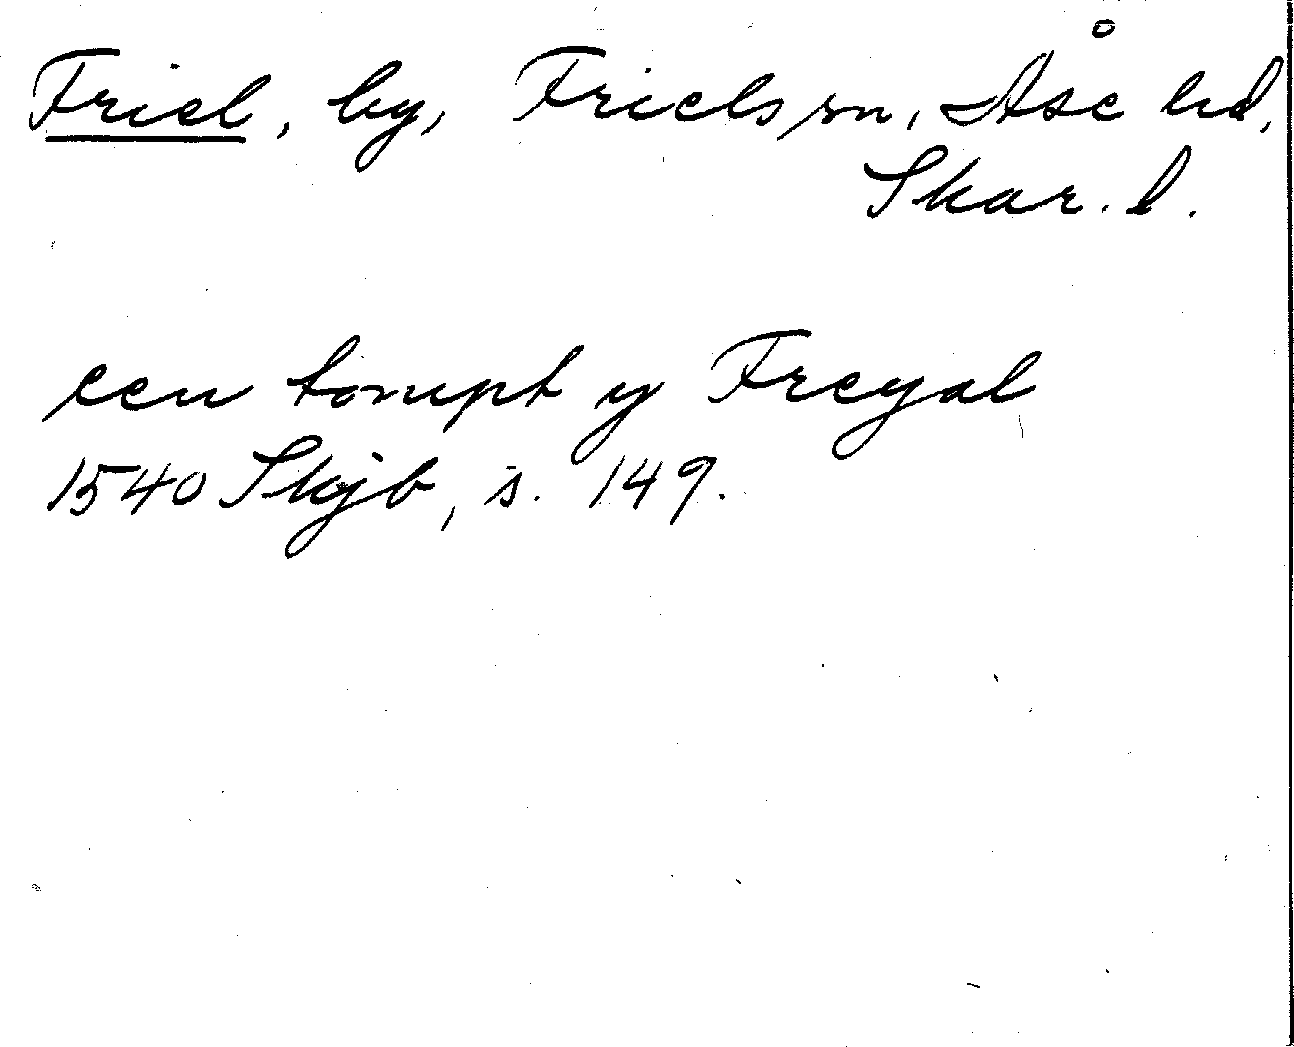 Friel, by, Friels sn, Åse hd,
Skar. l.
een tompt y Freyal
1540 Skjb, s. 149.